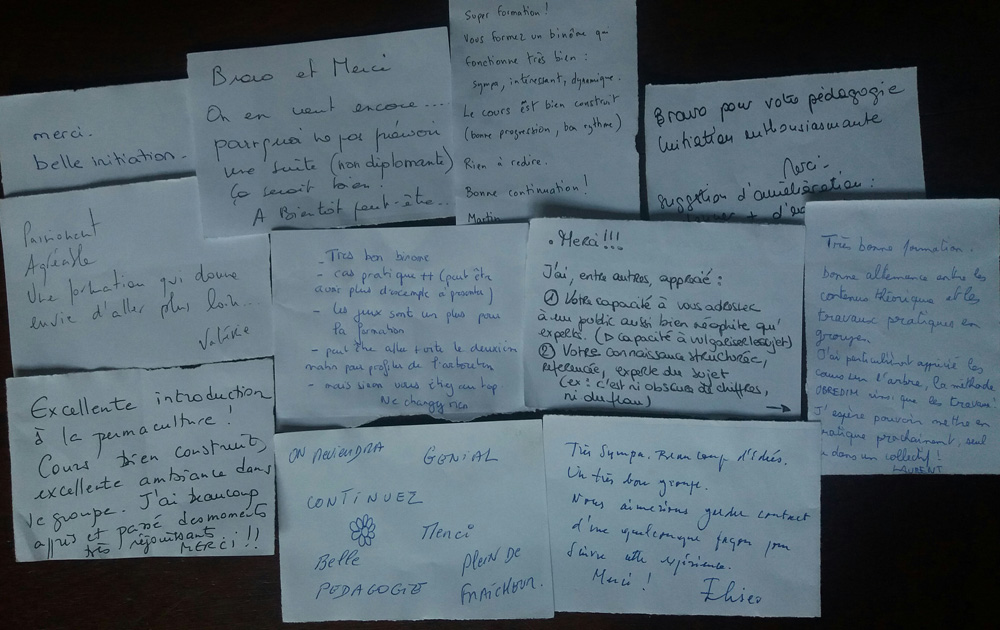 merci.
belle initiation.
Bravo et Merci
On en veut encore....
pourquoi ne pas prévoir
une suite (non diplomante)
ça serait bien!
A Bientôt peut-être...
Super formation!
Vous formez un binôme qui
fonctionne très bien :
sympa, intéressant, dynamique.
Le cours est bien construit
(bonne progression, bon rythme)
Rien à redire.
Bonne continuation!
Martin
Bravo pour votre pédagogie
initiation enthousiasmante
Merci-
suggestion d'amélioration:
Passionant
Agréable
Une formation qui donne
envie d'aller plus loin...
Valérie
- Très bon binome
- cas pratique ++ (peut être
avoir plus d'exemple à presenter)
- les jeux sont un plus pour
la formation
- peut être aller + vite le deuxième
matin
- mais sinon vous êtes au top.
Ne changez rien
. Merci!!!
J'ai, entre autres, apprécié :
① Votre capacité à vous adresser
à un public aussi bien néophite qu'
experts. (▷ capacité à vulgariser le sujet)
② Votre connaissance structurée,
référencée, experte du sujet
(ex : c'est ni obscurs de chiffres,
ni du flou)
→
Très bonne formation.
bonne alternance entre les
contenus théorique et les
travaux pratiques en
groupes.
J'ai particulièrement apprécié les
cours sur l'arbre, la méthode
OBREDIM ainsi que les travaux.
J'espère pouvoir mettre en
pratique prochainement, seul
ou dans un collectif!
LAURENT
Excellente introduction
à la permaculture!
Cours bien construit,
excellente ambiance dans
le groupe. J'ai beaucoup
appris et passé des moments
très réjouissants
MERCI!!
ON REVIENDRA GENIAL
CONTINUEZ
Merci
Belle PLEIN DE
PEDAGOGIE FRAÎCHEUR.
Très Sympa. Beaucoup d'idées.
Un très bon groupe.
Nous aimerions garder contact
d'une quelconque façon pour
suivre votre expérience.
Merci!